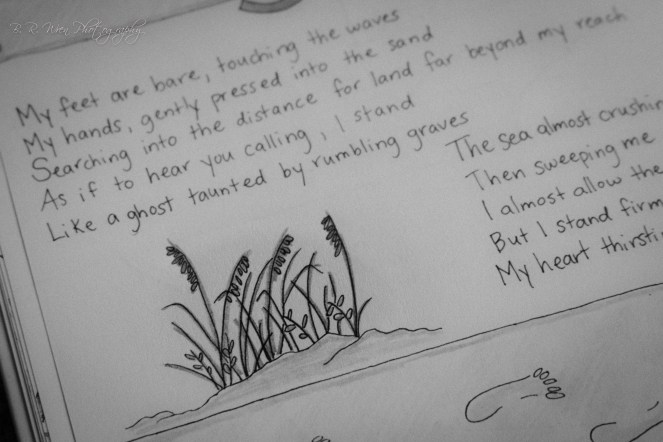 B. R. Wien Photography
My feet are bare, touching the waves
My hands, gently pressed into the sand
Searching into the distance for land far beyond my reach
As if to hear you calling, I stand
Like a ghost taunted by rumbling graves
The sea almost
Then sweeping me
I almost allow the
But I stand firm
My heart